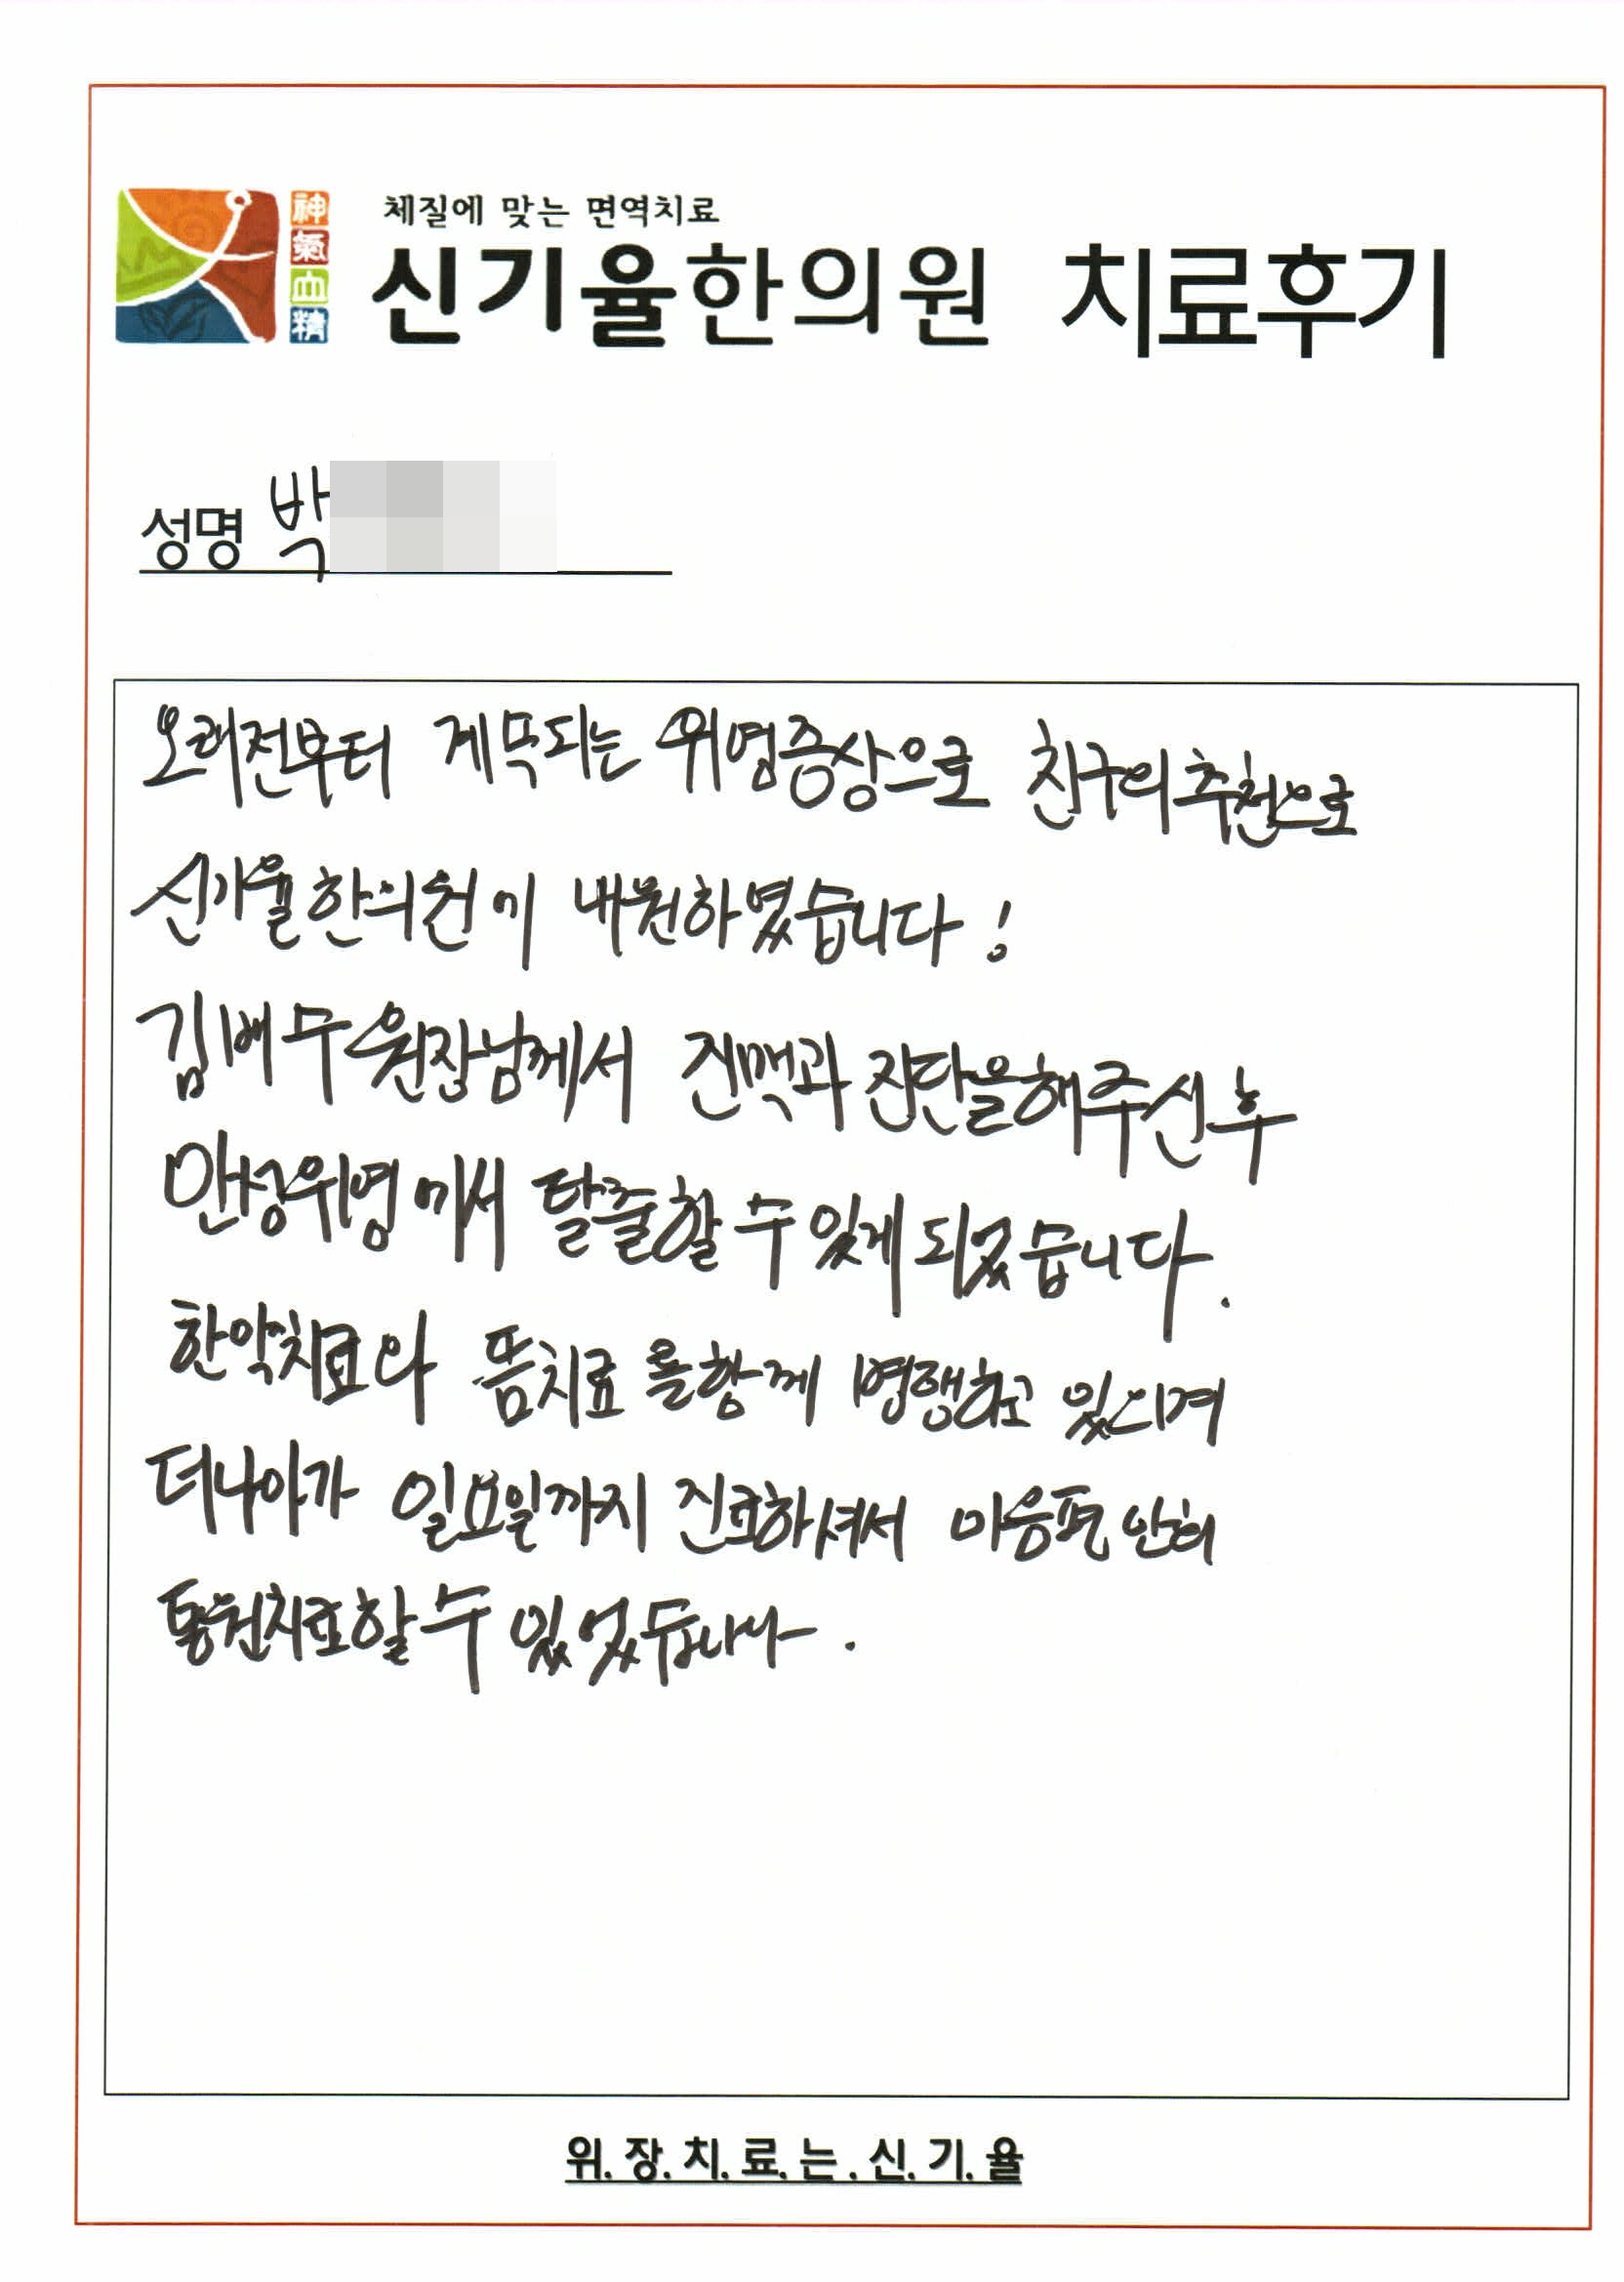 神
氣
血
精
체질에 맞는 면역치료
신기율한의원 치료후기
성명 박
오래전부터 계속되는 위염증상으로 친구의 추천으로
신기율한의원에 내원하였습니다!
김배수원장님께서 진맥과 진단을해주신후
만성위염에서 탈출할 수 있게 되었습니다.
한약치료와 뜸치료을함께 병행하고 있으며
더나아가 일요일까지 진료하셔서 마음편안히
통원치료할수 있었습니다.
위.장.치.료.는.신.기.율